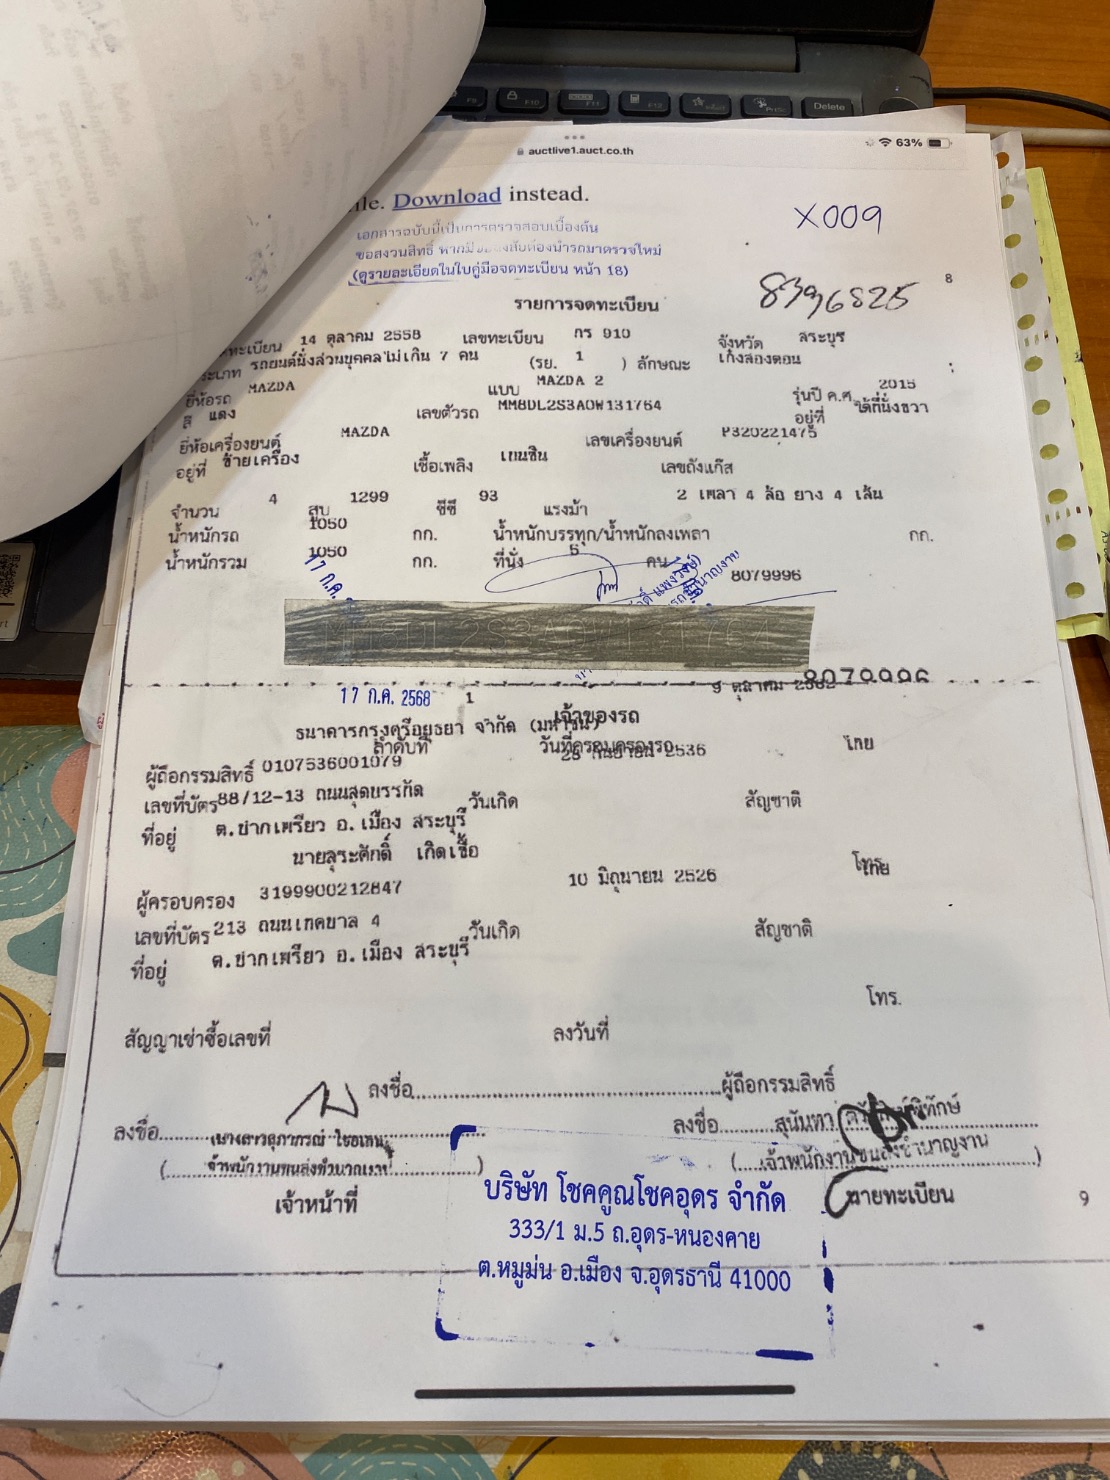 F9 F10 F11 F12 Delete
auctlive1.auct.co.th
63%
ile. Download instead.
X009
เอกสารฉบับนี้เป็นการตรวจสอบเบื้องต้น
ขอสงวนสิทธิ์ หากมี ต้องนำรถมาตรวจใหม่
(ดูรายละเอียดในใบคู่มือจดทะเบียน หน้า 18)
8396825
8
รายการจดทะเบียน
ทะเบียน 14 ตุลาคม 2558 เลขทะเบียน กร 910 จังหวัด สระบุรี
ระเภท รถยนต์นั่งส่วนบุคคลไม่เกิน 7 คน (รย. 1 ) ลักษณะ เก๋งสองตอน
ยี่ห้อรถ MAZDA แบบ MAZDA 2 รุ่นปี ค.ศ. 2015
สี แดง เลขตัวรถ MM8DL2S3A0W131764 อยู่ที่ ใต้ที่นั่งขวา
ยี่ห้อเครื่องยนต์ MAZDA เลขเครื่องยนต์ P320221475
อยู่ที่ ซ้ายเครื่อง เชื้อเพลิง เบนซิน เลขถังแก๊ส
จำนวน 4 สูบ 1299 ซีซี 93 แรงม้า 2 เพลา 4 ล้อ ยาง 4 เส้น
น้ำหนักรถ 1050 กก. น้ำหนักบรรทุก/น้ำหนักลงเพลา กก.
น้ำหนักรวม 1050 กก. ที่นั่ง 5 คน
17 ก.ค.
8079996
8079996
17 ก.ค. 2568 1 9 ตุลาคม
เจ้าของรถ
ธนาคารกรุงศรีอยุธยา จำกัด (มหาชน)
ลำดับที่ วันที่ครอบครองรถ
ผู้ถือกรรมสิทธิ์ 0107536001079 2536 ไทย
เลขที่บัตร 88/12-13 ถนนสุดบรรทัด วันเกิด สัญชาติ
ที่อยู่ ต.ปากเพรียว อ.เมือง สระบุรี
นายสุระศักดิ์ เกิดเชื้อ โทร.
ผู้ครอบครอง 3199900212847 10 มิถุนายน 2526 ไทย
เลขที่บัตร 213 ถนนเทศบาล 4 วันเกิด สัญชาติ
ที่อยู่ ต.ปากเพรียว อ.เมือง สระบุรี
โทร.
สัญญาเช่าซื้อเลขที่ ลงวันที่
ลงชื่อ ผู้ถือกรรมสิทธิ์
ลงชื่อ นางสาวสุภาภรณ์ ลงชื่อ สุนันทา
(เจ้าพนักงานขนส่งชำนาญงาน) (เจ้าพนักงานขนส่งชำนาญงาน)
เจ้าหน้าที่ นายทะเบียน
9
บริษัท โชคคูณโชคอุดร จำกัด
333/1 ม.5 ถ.อุดร-หนองคาย
ต.หมูม่น อ.เมือง จ.อุดรธานี 41000